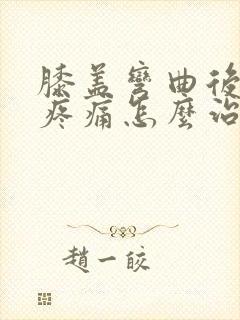 膝盖彎曲後
疼痛怎麼治
趙一皎